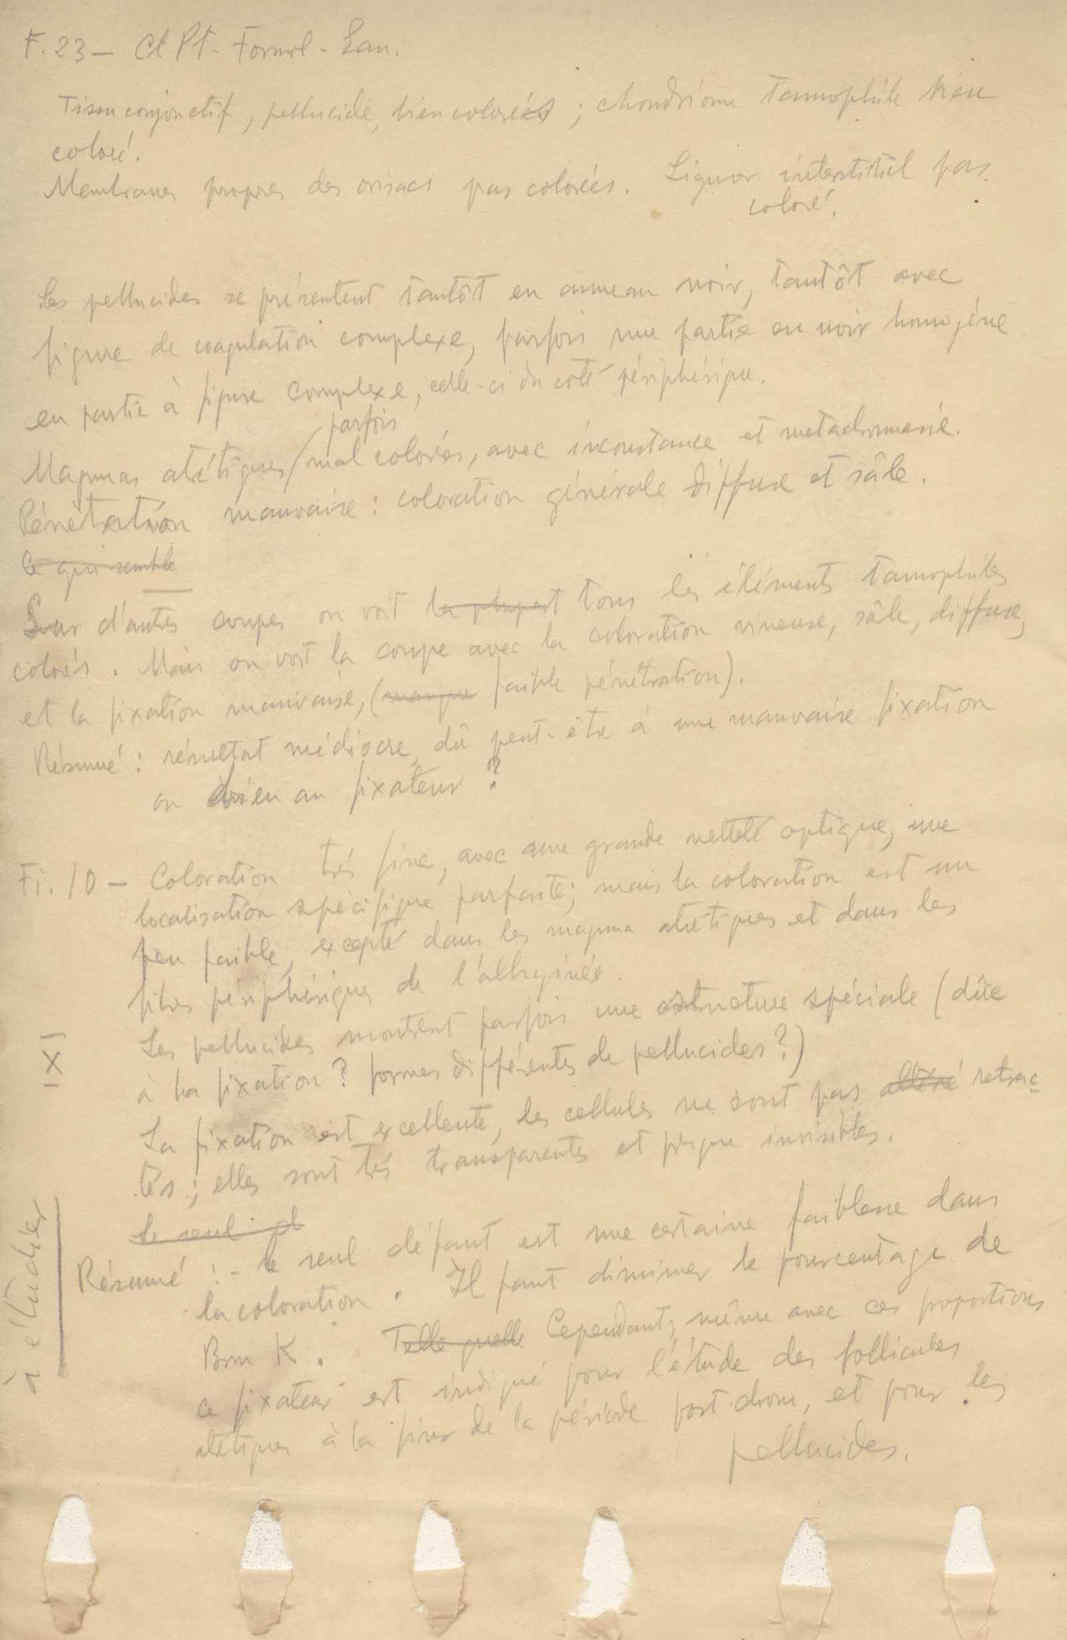 F. 23 — Cl Pt - Formol - Eau.
Tissu conjonctif, pellucide, bien colorés ; chondriome tannophile bien
coloré.
Membranes propres des ovisacs pas colorées. Liquor interstitiel pas
coloré.
Les pellucides se présentent tantôt en anneau noir, tantôt avec
figure de coagulation complexe, parfois une partie en noir homogène
en partie à figure complexe, celle-ci du côté périphérique.
parfois
Magmas atrétiques / mal colorés, avec inconstance et métachromasie.
Pénétration mauvaise : coloration générale diffuse et sâle.
Ce qui semble
Sur d'autres coupes on voit la plupart tous les éléments tannophiles
colorés. Mais on voit la coupe avec la coloration vineuse, sâle, diffuse,
et la fixation mauvaise, (manque faible pénétration).
Résumé : résultat médiocre, dû peut-être à une mauvaise fixation
ou bien au fixateur ?
Fi. 10 — Coloration très fine, avec une grande netteté optique, une
localisation spécifique parfaite ; mais la coloration est un
peu faible, excepté dans les magma atrétiques et dans les
fibres périphériques de l'albuginée.
Les pellucides montrent parfois une structure spéciale (dûe
à la fixation ? formes différentes de pellucides ?)
La fixation est excellente, les cellules ne sont pas altéré retrac
tés ; elles sont très transparentes et presque invisibles.
Le seul
Résumé : - le seul défaut est une certaine faiblesse dans
la coloration. Il faut diminuer le pourcentage de
Brm K. Telle quelle Cependant, même avec ces proportions
ce fixateur est indiqué pour l'étude des follicules
atrétiques à la fin de la période post-drom, et pour les
pellucides.
IXI
à étudier